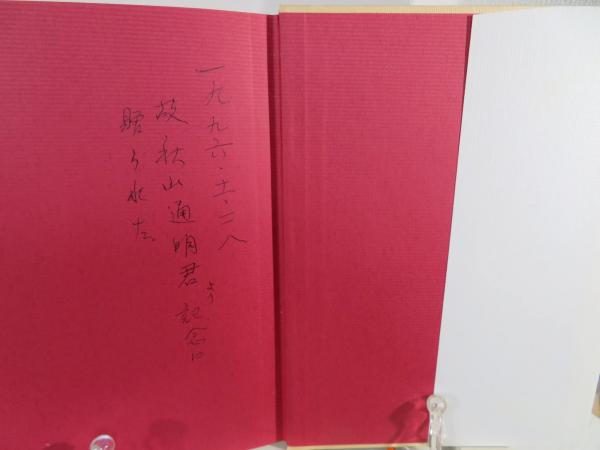 一九九六・十一・二八
故秋山通明君より記念に
贈られた。